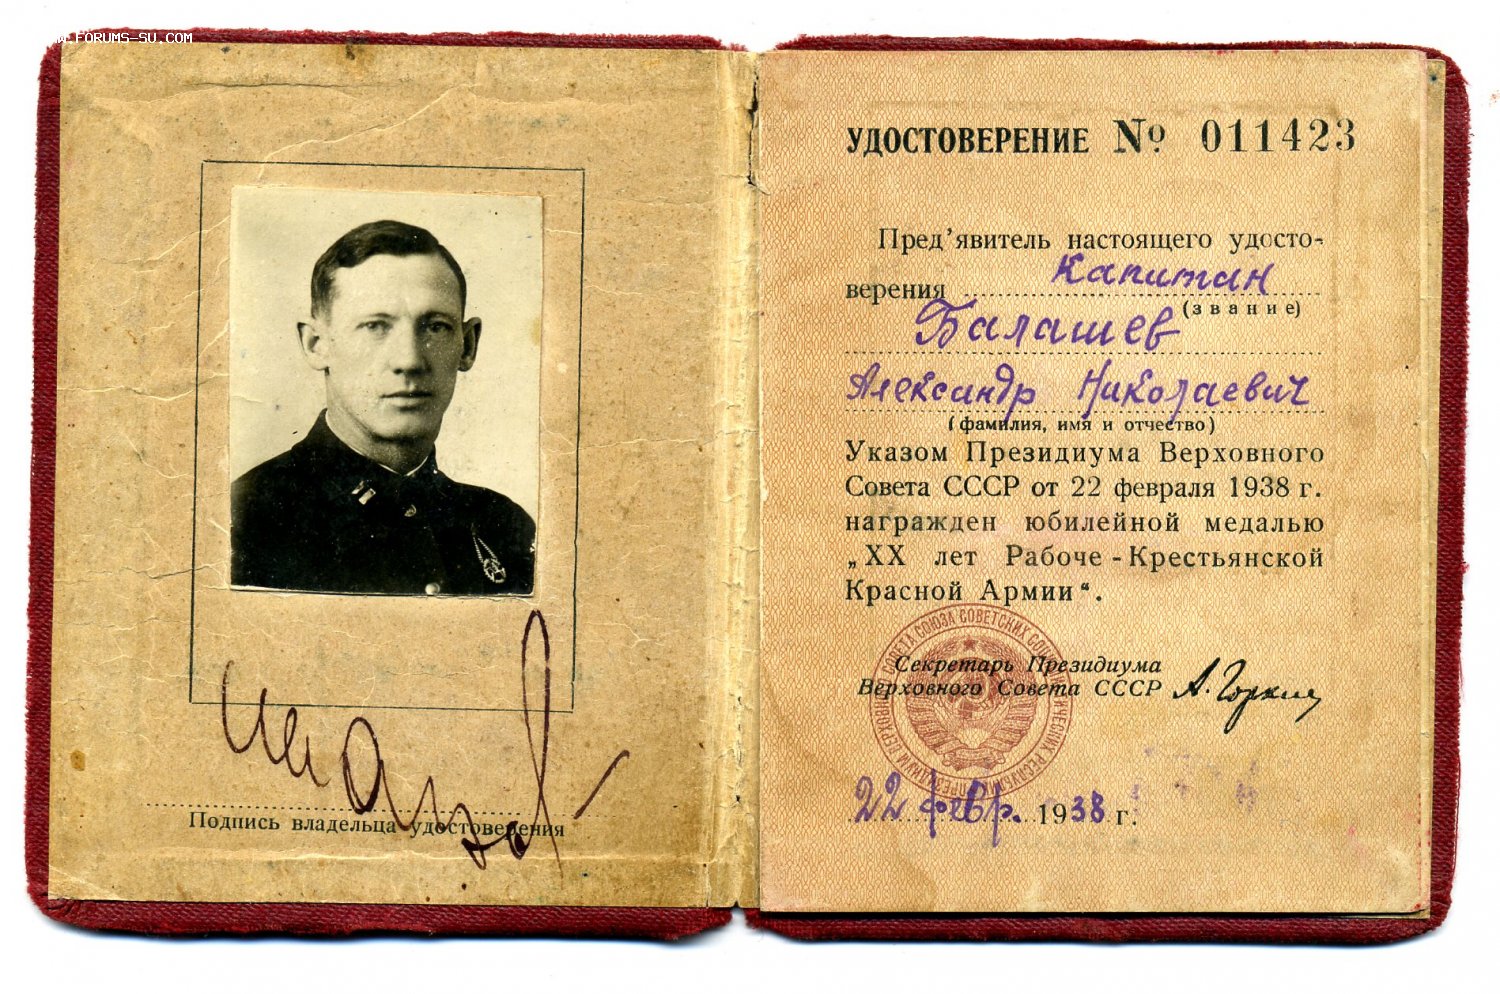 FORUMS-SU.COM
Подпись владельца удостоверения
УДОСТОВЕРЕНИЕ № 011423
Пред'явитель настоящего удосто-
верения Капитан
(звание)
Балашев
Александр Николаевич
(фамилия, имя и отчество)
Указом Президиума Верховного
Совета СССР от 22 февраля 1938 г.
награжден юбилейной медалью
„XX лет Рабоче-Крестьянской
Красной Армии“.
Секретарь Президиума
Верховного Совета СССР А. Горкин
22 февр. 1938 г.